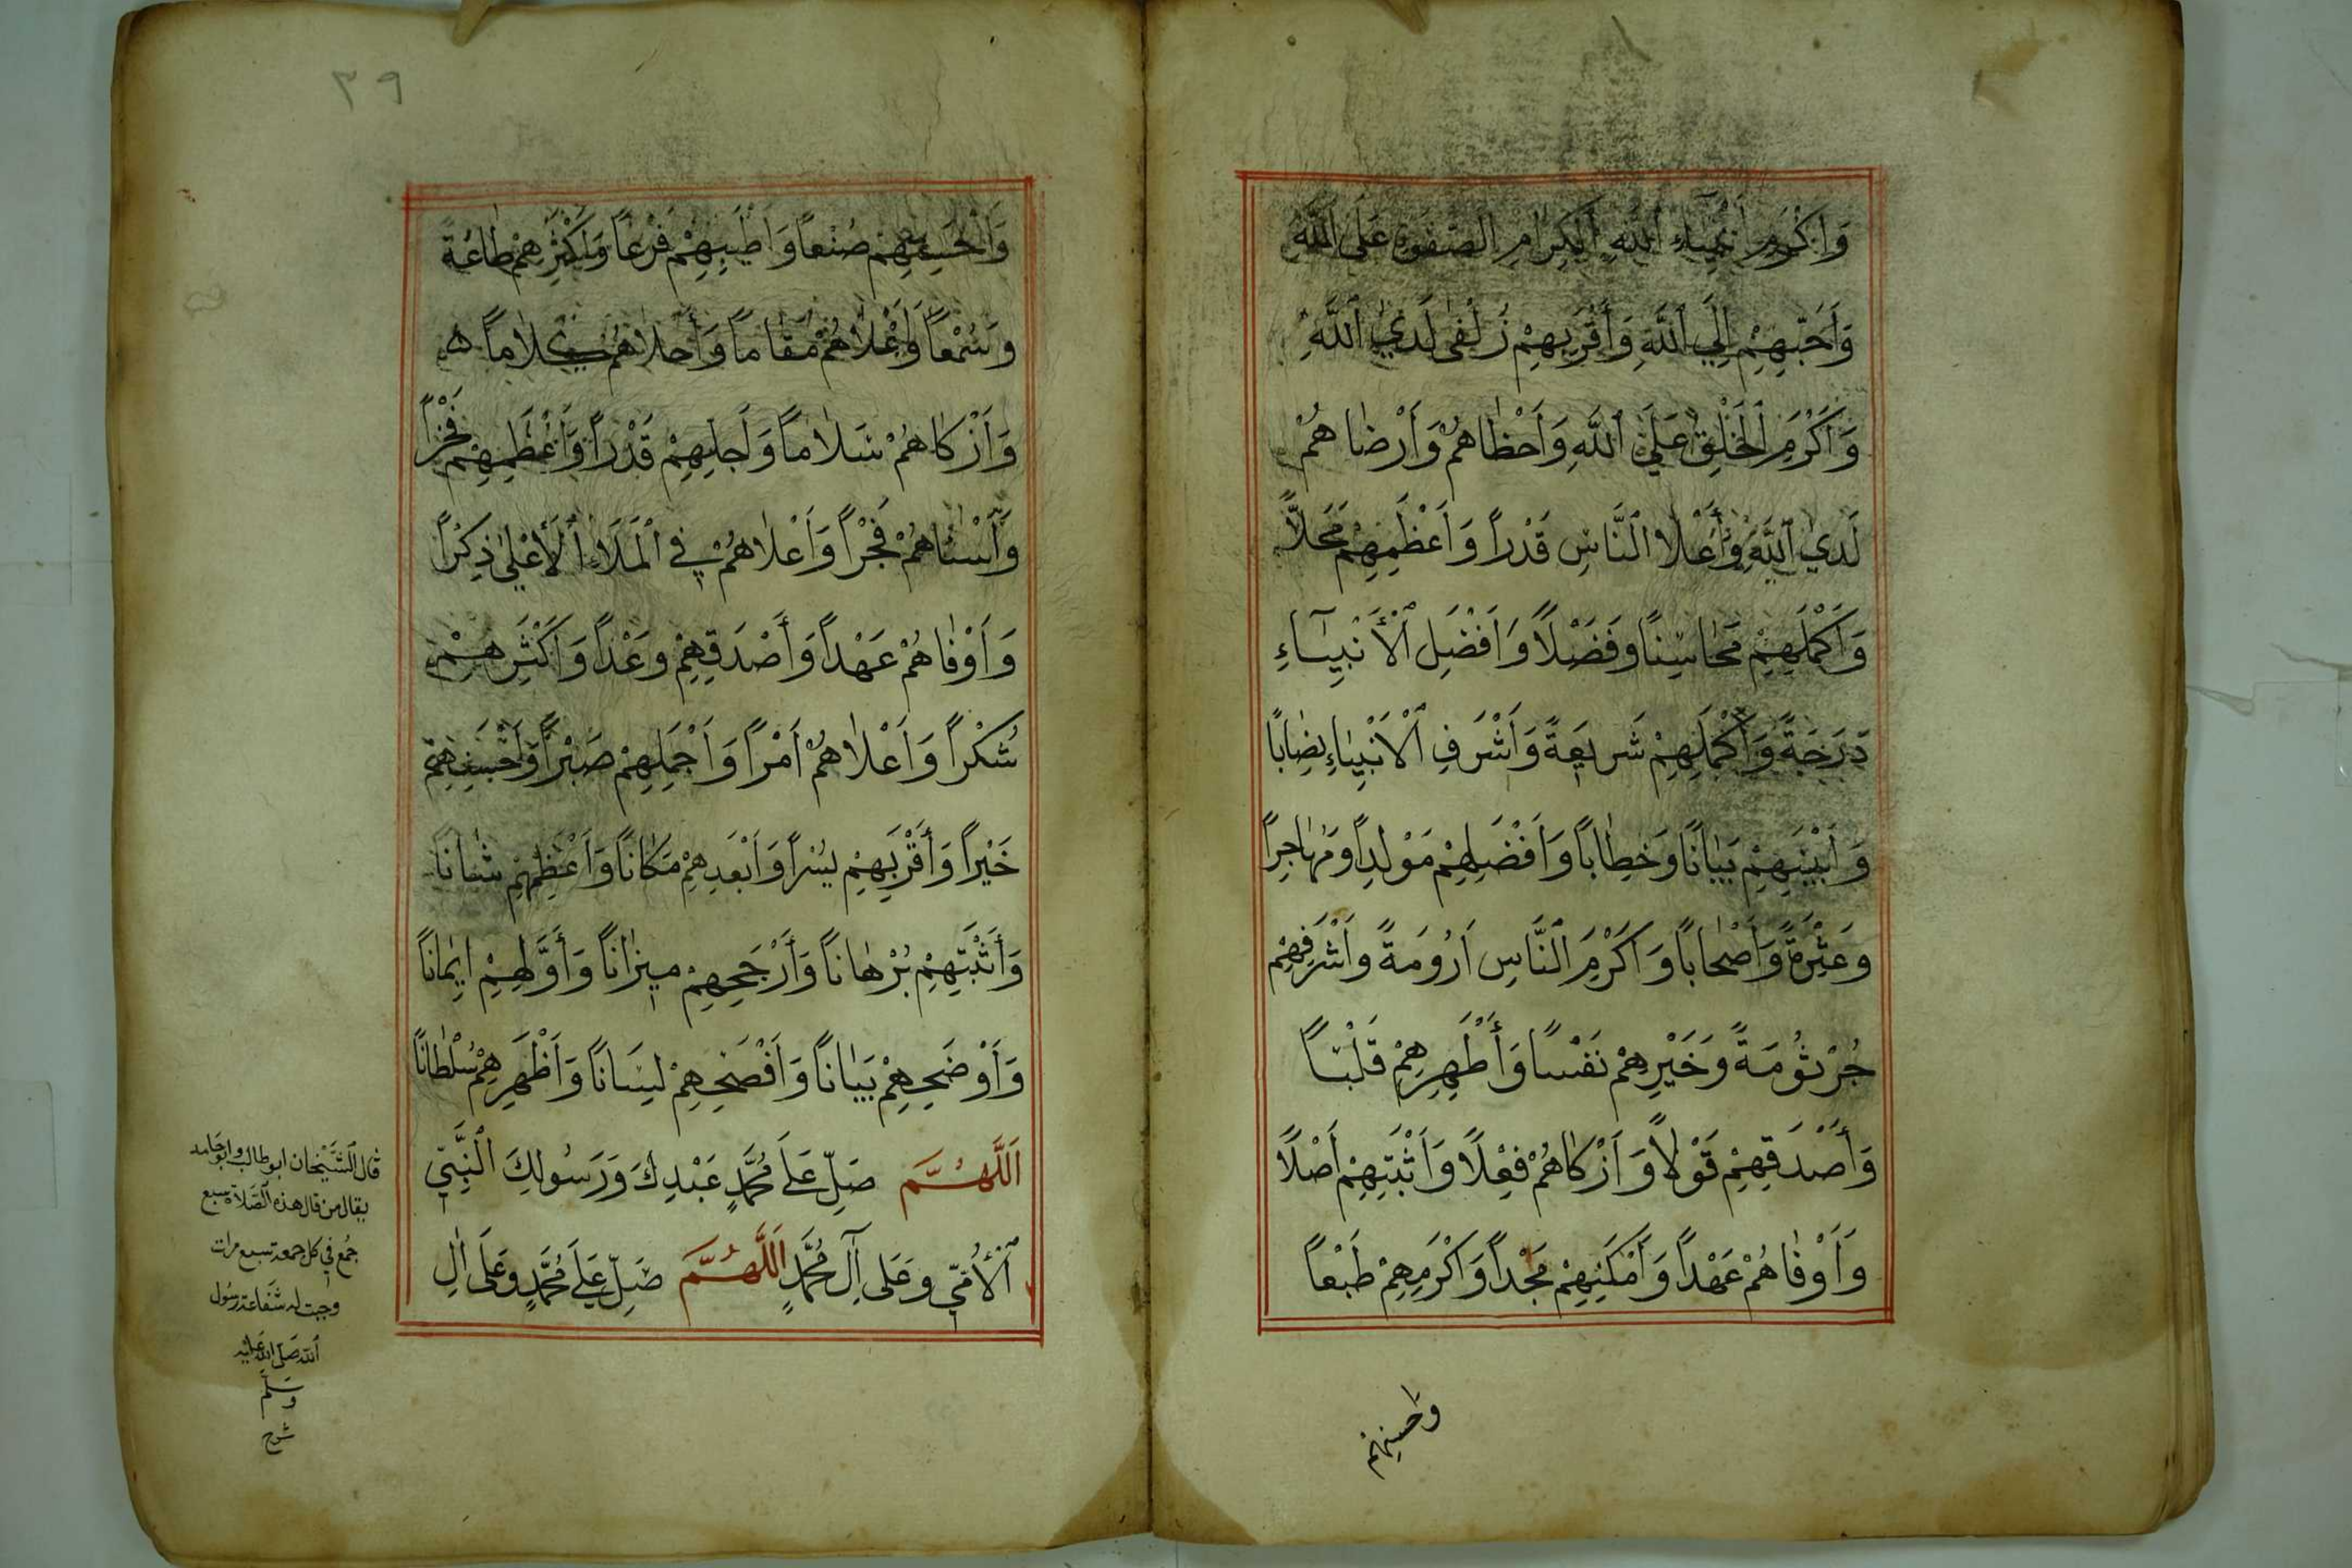 وَاَكْرَمِ اَنْبِيَاءِ اللهِ الْكِرَامِ الصَّفْوَةِ عَلَى اللهِ
وَأَحَبِّهِمْ اِلَي اللَّهِ وَأَقْرَبِهِمْ زُلْفٰى لَدَيِ اللَّهِ
وَاَكْرَمِ الْخَلْقِ عَلَي اللَّهِ وَاَحْظَاهُمْ وَاَرْضَاهُمْ
لَدَي اللَّهِ وَأَعْلَا النَّاسِ قَدْراً وَاَعْظَمِهِمْ مَحَلاًّ
وَاَكْمَلِهِمْ مَحَاسِنًا وَفَضْلاً وَاَفْضَلِ الْأَنْبِيَاءِ
دَرَجَةً وَأَكْمَلِهِمْ شَرِيعَةً وَاَشْرَفِ الْاَنْبِيَاءِ نِصَابًا
وَاَبْيَنِهِمْ بَيَانًا وَخِطَاباً وَاَفْضَلِهِمْ مَوْلِداً وَمُهَاجَراً
وَعِتْرَةً وَاَصْحَاباً وَاَكْرَمِ النَّاسِ اَرُومَةً وَاَشْرَفِهِمْ
جُرْثُومَةً وَخَيْرِهِمْ نَفْسًا وَأَطْهَرِهِمْ قَلْبًا
وَأَصْدَقِهِمْ قَوْلاً وَاَزْكَاهُمْ فِعْلًا وَاَثْبَتِهِمْ اَصْلًا
وَاَوْفَاهُمْ عَهْداً وَاَمْكَنِهِمْ مَجْداً وَاَكْرَمِهِمْ طَبْعاً
واحسنهم
٣٩
وَاَحْسَنِهِمْ صُنْعاً وَاَطْيَبِهِمْ فَرْعاً وَاَكْثَرِهِمْ طَاعَةً
وَسَمْعاً وَاَعْلَاهُمْ مَقَاماً وَأَحْلَاهُمْ كَلَاماً
وَاَزْكَاهُمْ سَلَاماً وَاَجَلِّهِمْ قَدْراً وَاَعْظَمِهِمْ فَخْراً
وَاَسْنَاهُمْ فَجْراً وَاَعْلَاهُمْ فِي الْمَلَاءِ الْأَعْلٰى ذِكْراً
وَاَوْفَاهُمْ عَهْداً وَأَصْدَقِهِمْ وَعْداً وَاَكْثَرِهِمْ
شُكْراً وَاَعْلَاهُمْ اَمْراً وَاَجْمَلِهِمْ صَبْراً وَاَحْسَنِهِمْ
خَيْراً وَأَقْرَبِهِمْ يُسْراً وَاَبْعَدِهِمْ مَكَانًا وَاَعْظَمِهِمْ شَانًا
وَأَثْبَتِهِمْ بُرْهَاناً وَأَرْجَحِهِمْ مِيزَانًا وَأَوَّلِهِمْ اِيمَاناً
وَاَوْضَحِهِمْ بَيَاناً وَاَفْصَحِهِمْ لِسَانًا وَاَظْهَرِهِمْ سُلْطَانًا
اَللَّهُمَّ صَلِّ عَلَى مُحَمَّدٍ عَبْدِكَ وَرَسُولِكَ النَّبِيِّ
الْأُمِّيِّ وَعَلٰى اٰلِ مُحَمَّدٍ اَللَّهُمَّ صَلِّ عَلَى مُحَمَّدٍ وَعَلٰى اٰلِ
قال الشَّيْخان ابوطالب وابوحامد
يقال من قال هذه الصَّلاة سبع
جُمع في كل جمعة سبع مرات
وجبت له شفاعة رسُول
الله صَلّى الله عَليْه
وسَلم
شرح